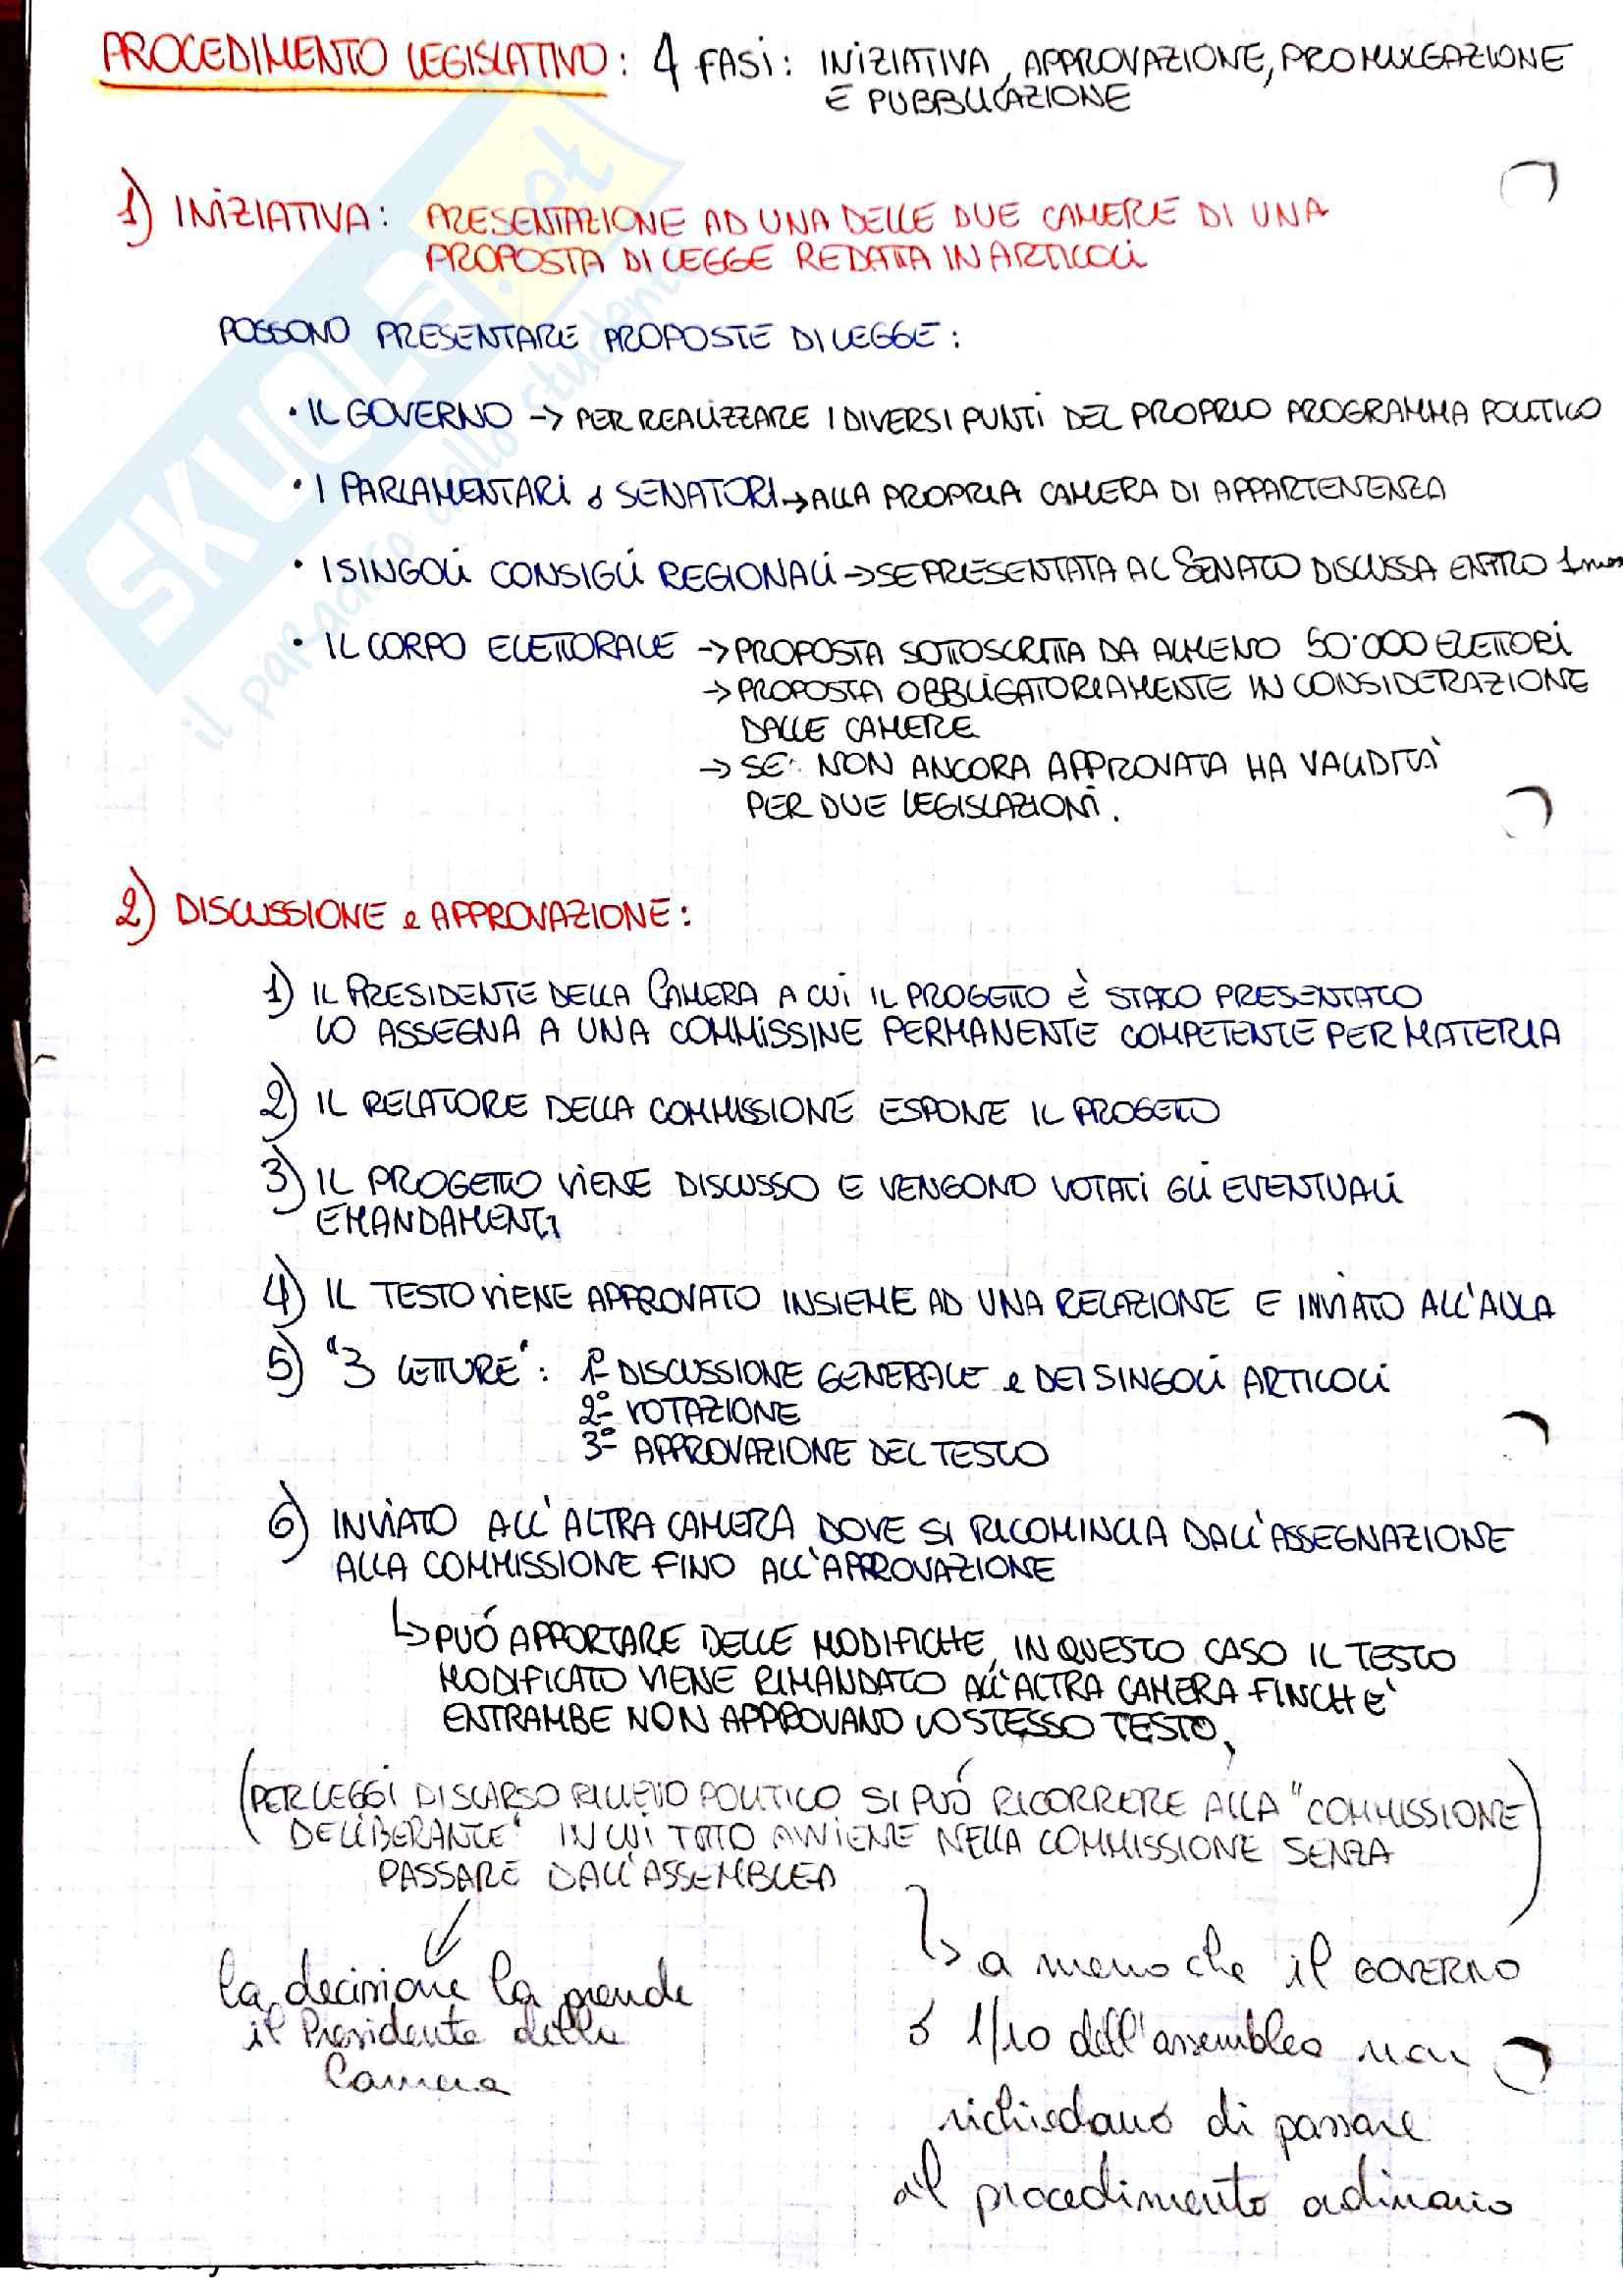 PROCEDIMENTO LEGISLATIVO: 4 FASI: INIZIATIVA, APPROVAZIONE, PROMULGAZIONE
E PUBBLICAZIONE
1) INIZIATIVA: PRESENTAZIONE AD UNA DELLE DUE CAMERE DI UNA
PROPOSTA DI LEGGE REDATTA IN ARTICOLI
POSSONO PRESENTARE PROPOSTE DI LEGGE:
• IL GOVERNO → PER REALIZZARE I DIVERSI PUNTI DEL PROPRIO PROGRAMMA POLITICO
• I PARLAMENTARI o SENATORI → ALLA PROPRIA CAMERA DI APPARTENENZA
• I SINGOLI CONSIGLI REGIONALI → SE PRESENTATA AL SENATO DISCUSSA ENTRO 1 mes
• IL CORPO ELETTORALE → PROPOSTA SOTTOSCRITTA DA ALMENO 50.000 ELETTORI
→ PROPOSTA OBBLIGATORIAMENTE IN CONSIDERAZIONE
DALLE CAMERE
→ SE NON ANCORA APPROVATA HA VALIDITÀ
PER DUE LEGISLAZIONI.
2) DISCUSSIONE e APPROVAZIONE:
1) IL PRESIDENTE DELLA CAMERA A CUI IL PROGETTO È STATO PRESENTATO
LO ASSEGNA A UNA COMMISSINE PERMANENTE COMPETENTE PER MATERIA
2) IL RELATORE DELLA COMMISSIONE ESPONE IL PROGETTO
3) IL PROGETTO VIENE DISCUSSO E VENGONO VOTATI GLI EVENTUALI
EMANDAMENTI
4) IL TESTO VIENE APPROVATO INSIEME AD UNA RELAZIONE E INVIATO ALL'AULA
5) "3 LETTURE": 1° DISCUSSIONE GENERALE e DEI SINGOLI ARTICOLI
2° VOTAZIONE
3° APPROVAZIONE DEL TESTO
6) INVIATO ALL'ALTRA CAMERA DOVE SI RICOMINCIA DALL'ASSEGNAZIONE
ALLA COMMISSIONE FINO ALL'APPROVAZIONE
↳ PUÓ APPORTARE DELLE MODIFICHE, IN QUESTO CASO IL TESTO
MODIFICATO VIENE RIMANDATO ALL'ALTRA CAMERA FINCHE'
ENTRAMBE NON APPROVANO LO STESSO TESTO,
(PER LEGGI DI SCARSO RILIEVO POLITICO SI PUÓ RICORRERE ALLA "COMMISSIONE
DELIBERANTE" IN CUI TUTTO AVVIENE NELLA COMMISSIONE SENZA
PASSARE DALL'ASSEMBLEA)
la decisione la prende
il Presidente della
Camera
↳ a meno che il GOVERNO
ó 1/10 dell'assemblea non
richiedano di passare
al procedimento ordinario
SKUOLA.net
il paradiso dello studente